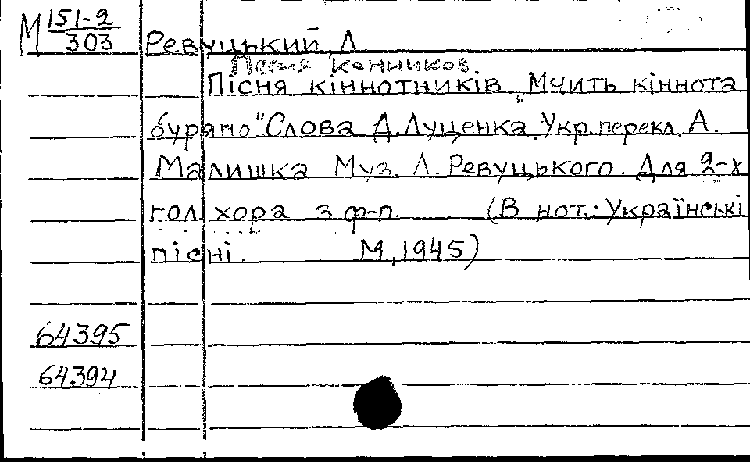 М 151-2
303
Ревуцький Л
Песня конников.
Пісня кіннотників „Мчить кіннота
буряно" Слова Д. Луценка. Укр. перекл. А.
Малишка Муз. Л. Ревуцького. Для 2-х
гол хора з ф-п (В нот.: Українські
пісні. М, 1945)
64395
64394